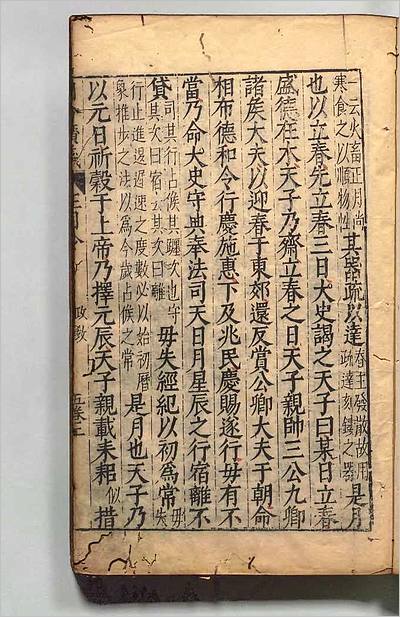 一云火畜正月尚
寒食之以順物性
其器疏以達
春主發散故用
疏達刻鏤之器
是月
也以立春先立春三日大史謁之天子曰某日立春
盛德在木天子乃齋立春之日天子親帥三公九卿
諸矦大夫以迎春于東郊還反賞公卿大夫于朝命
相布德和令行慶施惠下及兆民慶賜遂行毋有不
當乃命大史守典奉法司天日月星辰之行宿離不
貸
司其行占候其躔次也守
其次曰宿去其次曰離
毋失經紀以初爲常
毋
失
行止進退遲速之度數必以始初曆
象推步之法以爲今歲占候之常
是月也天子乃
以元日祈穀于上帝乃擇元辰天子親載耒耜
似
措
政教